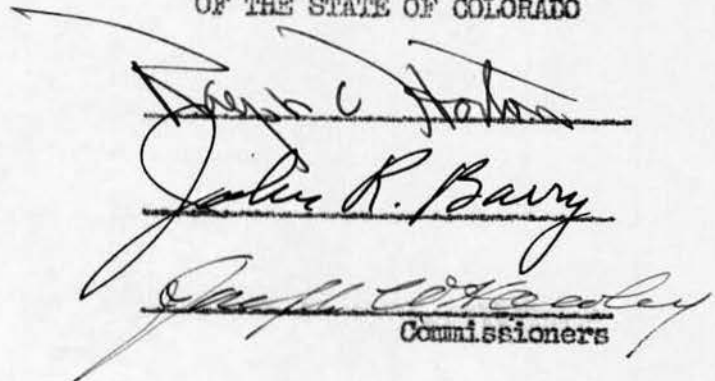 OF THE STATE OF COLORADO
Ralph C Horton
John R. Barry
Joseph W Hawley
Commissioners